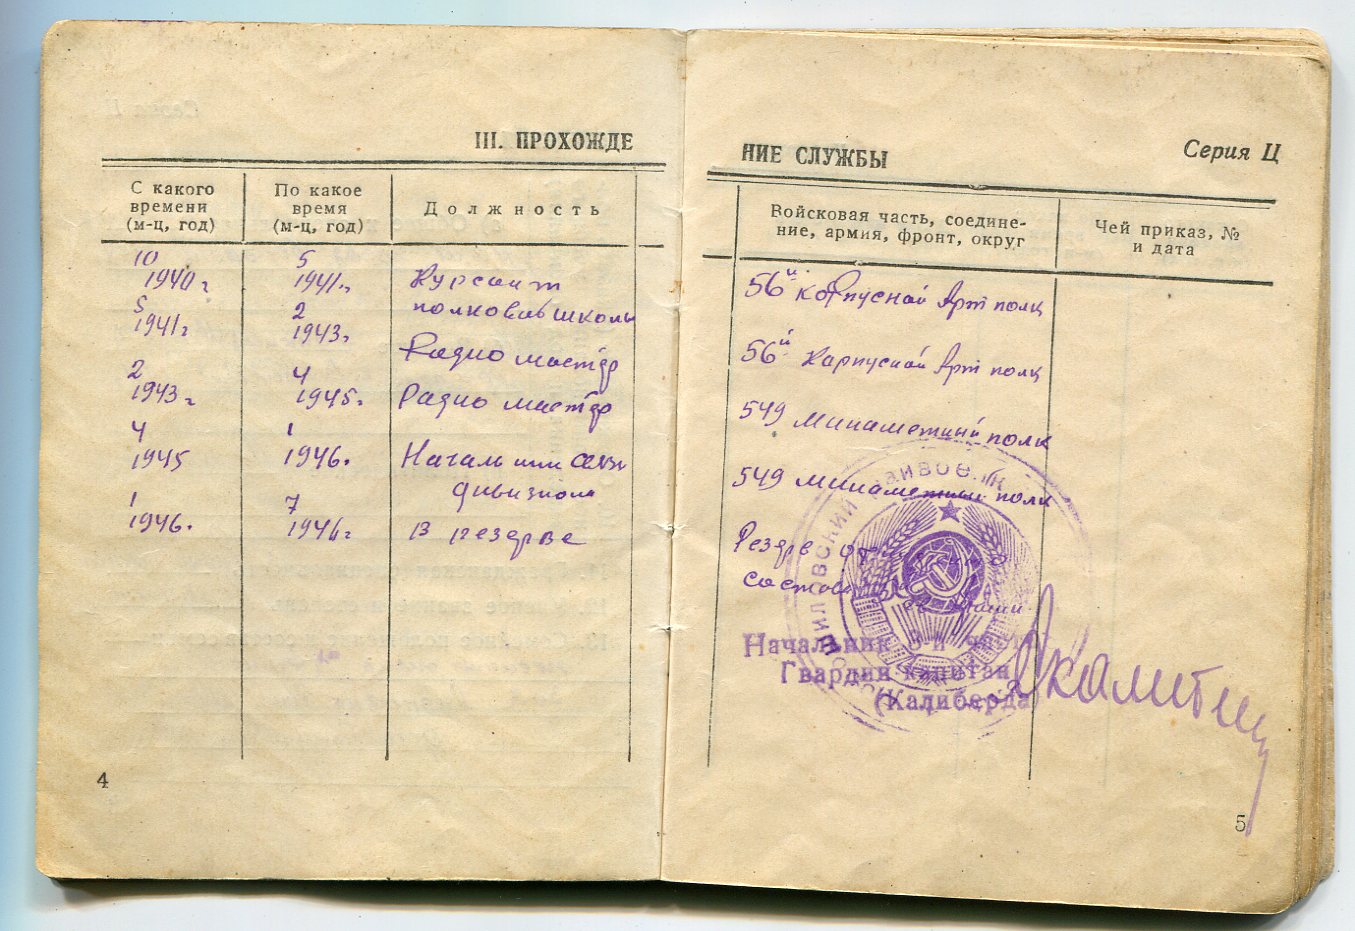 III. ПРОХОЖДЕ
НИЕ СЛУЖБЫ
Серия Ц
С какого времени (м-ц, год)
По какое время (м-ц, год)
Должность
Войсковая часть, соедине-
ние, армия, фронт, округ
Чей приказ, №
и дата
10 1940г
5 1941г.
Курсант
полковой школы
56й корпусной Арт полк
5 1941г
2 1943г.
Радио мастер
56й Карпусной Арт полк
2 1943г
4 1945г.
Радио мастер
549 минаметный полк
4 1945
1 1946.
Начальник связи
дивизиона
549 минаметный полк
1 1946.
7 1946г
В резерве
Резерв
состава
Начальник 3-й части
Гвардии капитан
(Калиберда
4
5